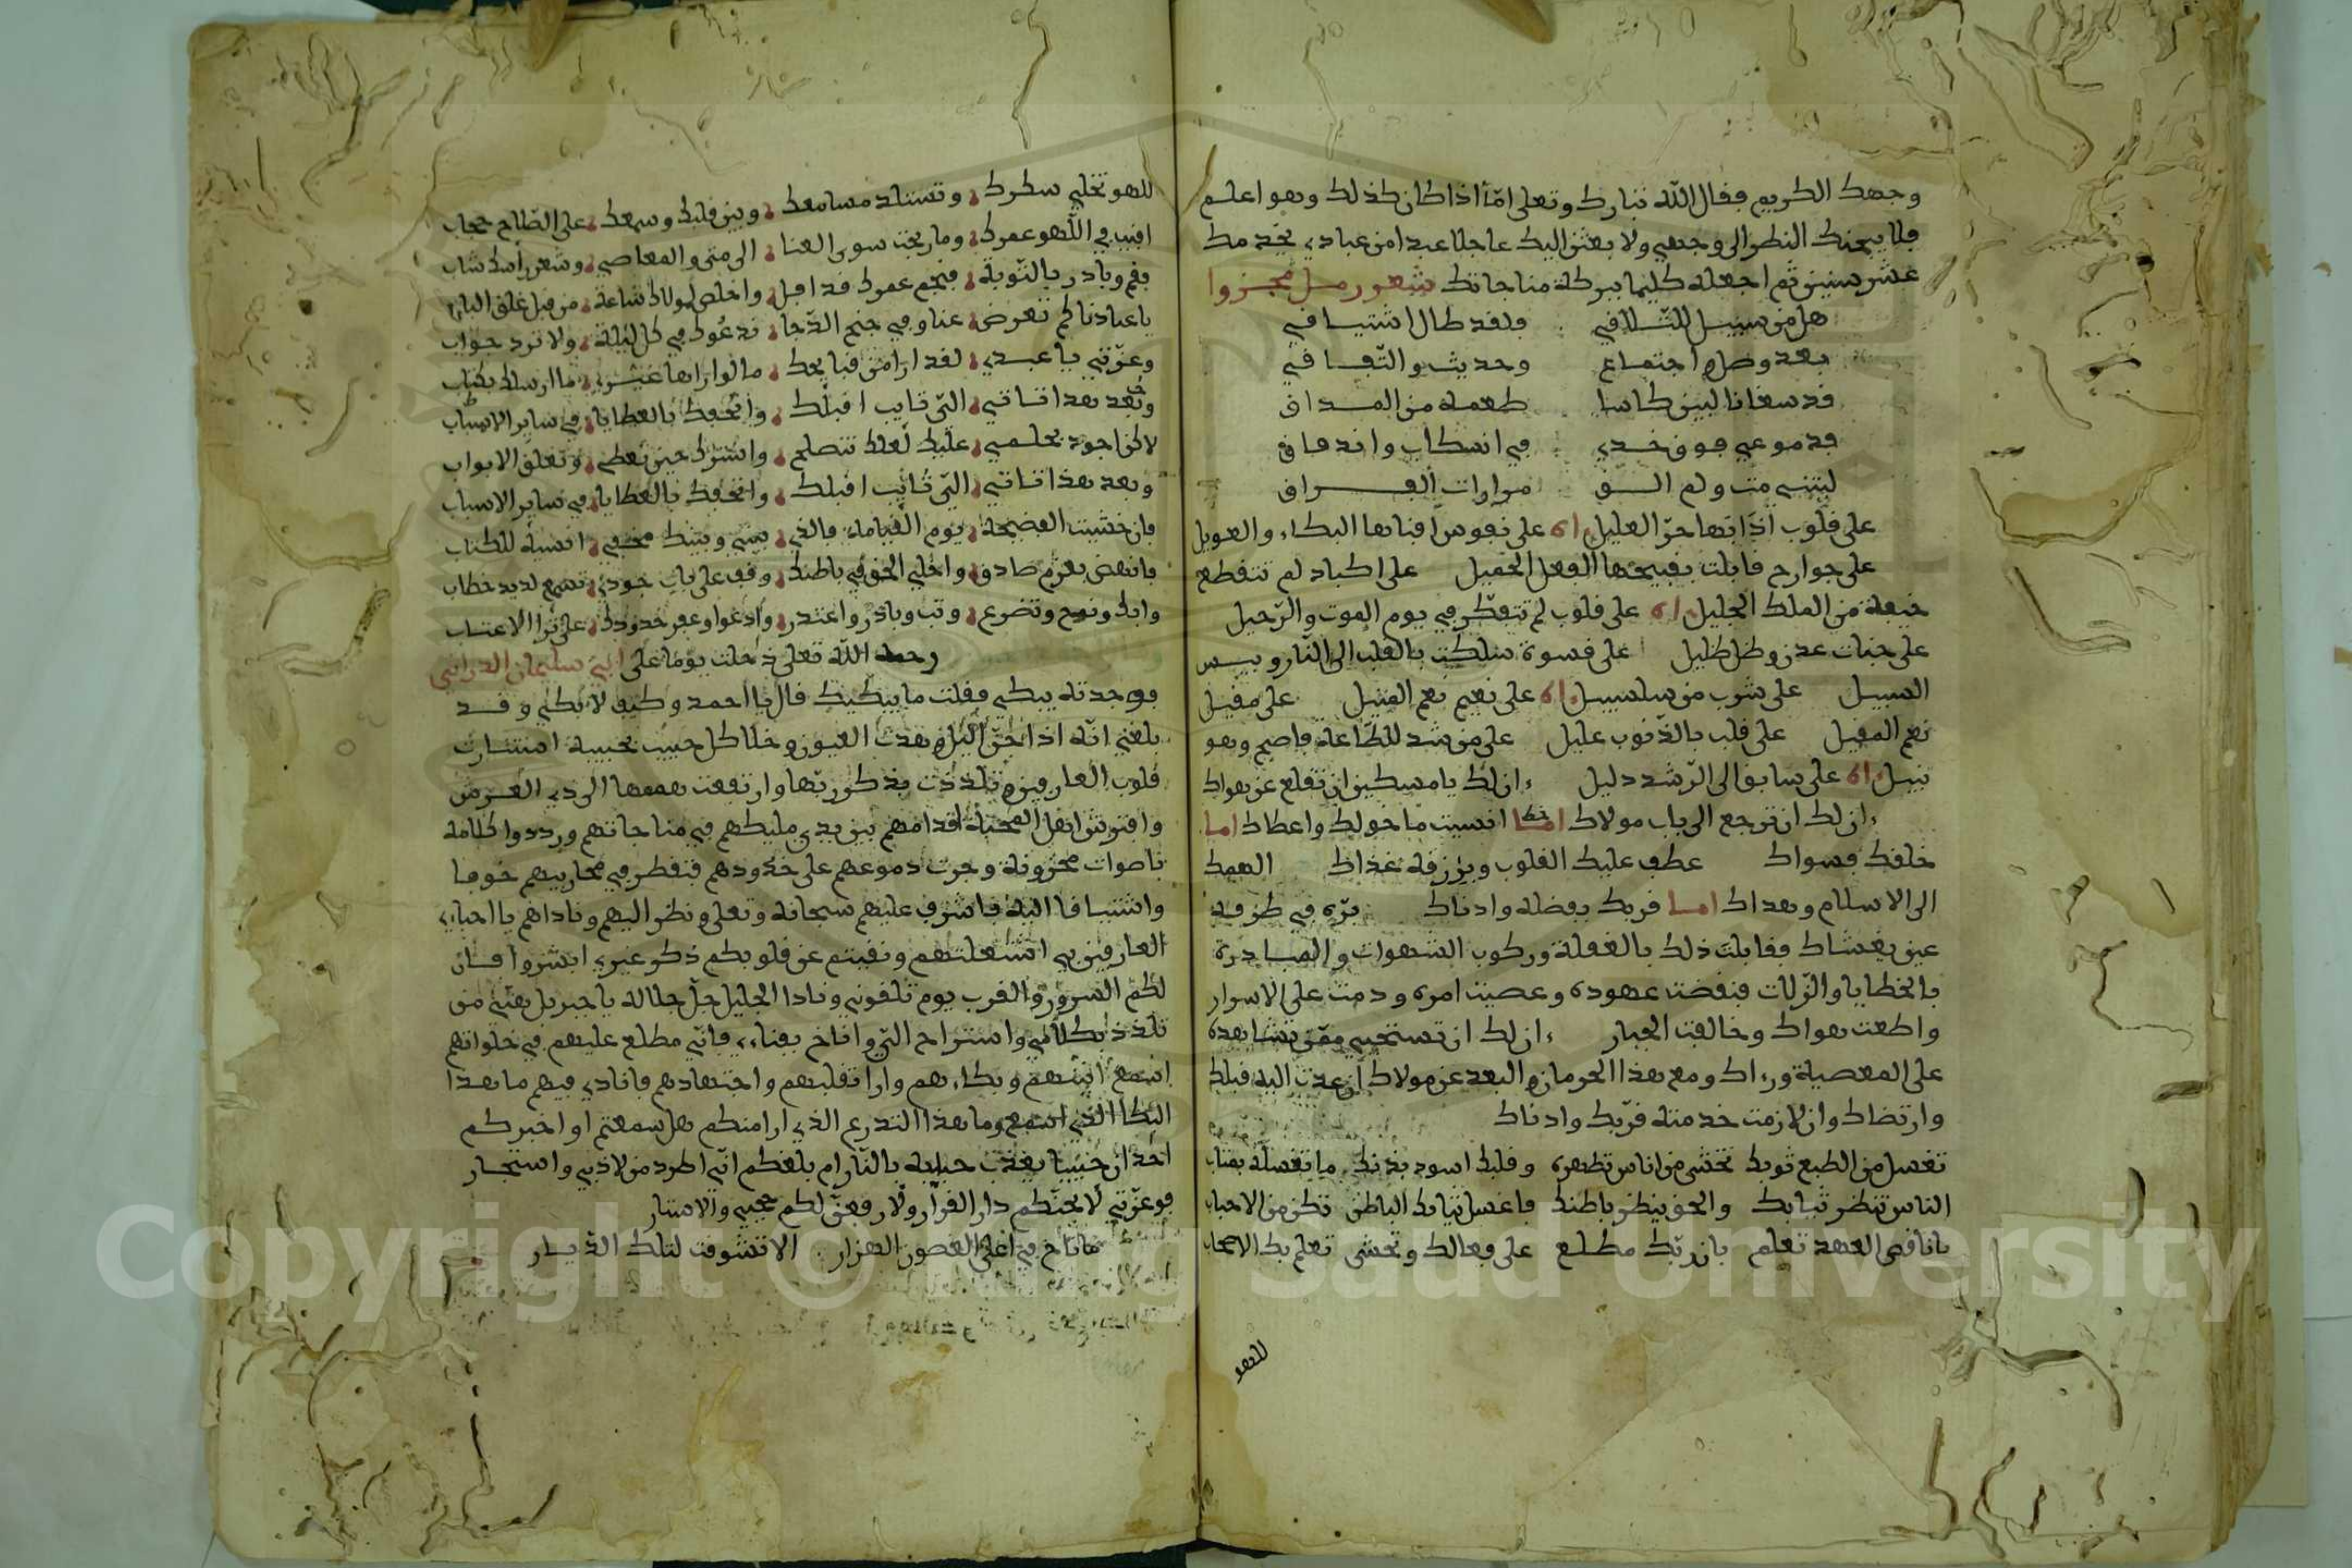 وجهك الكريم فقال الله تبارك وتعلى امّا اذا كان كذلك وهو اعلم
فلا يمحنك النظر الى وجهي ولا بعثن اليك عاجلا عبدا من عبادي يخدمك
عشر سنين ثم اجعله كليما ببركة مناجاتك شعور مل مجزوا
هل من سبيل للتلافي فلقد طال اشتيافي
بعد وصل واجتماع وحديث والتفافي
قد سفانا لبين كاسا طعمه من المداق
فدموعي فوق خدي في انسكاب واندفاق
ليتني مت ولم الق مرارات الفراق
على قلوب اذابها حرّ العليل اه على نفوس افناها البكاء والعويل
على جوارح قابلت بقبيحها الفعل الجميل على اكباد لم تتقطع
خيفة من الملك الجليل اه على قلوب لم تتفكر في يوم الموت والرّحيل
على جنات عدن وظل ظليل على قسوة سلكت بالقلب الى النار وبيس
السبيل على شرب من سلسبيل اه على نعيم نعم المنيل على مقيل
نعم المقيل على قلب بالذنوب عليل على من شد للطاعة فاصبح وهو
نبيل اه على سابق الى الرّشد دليل ءان لك يا مسكين ان تقلع عن هواك
ءان لك ان ترجع الى باب مولاك امـا انسيت ما خولك واعطاك اما
خلقك فسواك عطف عليك القلوب وبرزقه غذاك الهمك
الى الاسلام وهداك اما قربك بفضله وادناك برّه في طرفة
عين يغشاك فقابلت ذلك بالغفلة وركوب الشهوات والمبادرة
بالخطايا والزّلات فنقضت عهوده وعصيت امره ودمت على الاسرار
واطعت هواك وخالفت الجبار ءان لك ان تستحيي ممّن تشاهده
على المعصية وراك ومع هذا الحرمان والبعد عن مولاك ان عدت اليه قبلك
وارتضاك وان لازمت خدمته قرّبك وادناك
تغسل من الطبع ثوبك تخشى من اناس تظهره وقلبك اسود بذنبك ما تغسله بمتاب
الناس تنظر ثيابك والحق ينظر باطنك فاغسل ثيابك الباطن تكن من الاحباب
يا ناقص العهد تعلم بان ربّك مطلع على فعالك وتخشى تعلم بك الاصحاب
للهو
للهو تخلي سطرك وتستلد مسامعك وبين قلبك وسمعك على الصّلاح حجاب
افنيت في اللّهو عمرك وما ربحت سوى العنا الى متى والمعاصي وشعر راسك شاب
فقم وبادر بالتّوبة فنجم عمرك قد افل واخلص لمولاك ساعة من قبل غلق الباب
يا عبادنا كم تعرض عنا وفي جنح الدّجا ندعوك في كل ليلة ولا ترد جواب
وعزّتي يا عبدي لقد ارا من قبايحك ما لو اراها غيري ما ارسلك بكتاب
وبعد هذا تاتي الي تايب اقبلك واتحفك بالعطايا في ساير الاسباب
لاكن اجود بحلمي عليك لعلك تنصلح واسترك حين تعطي وتغلق الابواب
وبعد هذا تاتي الي تايب اقبلك واتحفك بالعطايا في ساير الاسباب
فان خشيت الفضيحة يوم القيامة فالذي بيني وبينك مخفي انسيه للكتاب
فانهض بعزم صادق واخلي الحق في باطنك وقف على باب جودي تسمع لديد خطاب
وابك ونوح وتضرع وتب وبادر واعتدر وادعوا وعفر خدودك على ترا الاعتاب
رحمه الله تعلى دخلت يوما على ابي سليمان الدراني
فوجدته يبكي فقلت ما يبكيك قال يا احمد وكيف لا ابكي وقد
بلغني انه اذا جنّ الليل وهدت العيون وخلا كل حبيب بحبيبه استنارت
قلوب العارفين وتلذذت بذكر ربّها وارتفعت هممها الى ذي العرش
وافترش اهل المحبّة اقدامهم بين يدي مليكهم في مناجاتهم ورددوا كلامه
باصوات محزونة وجرت دموعهم على خدودهم فتقطر في محاريبهم خوفا
واشتياقا اليه فاشرف عليهم سبحانه وتعلى ونظر اليهم وناداهم يا احبائي
العارفين بي اشتغلتم ونفيتم عن قلوبكم ذكر غيري ابشروا فان
لكم السرور والقرب يوم تلقوني ونادا الجليل جلّ جلاله يا جبريل بعيني من
تلذذ بكلامي واستراح الي واناخ بفناءي فاني مطلع عليهم في خلواتهم
اسمع انينهم وبكاءهم وارا تقلبهم واجتهادهم فنادي فيهم ما هذا
البكا الذي اسمع وما هذا التدرع الذي ارا منكم هل سمعتم او اخبركم
احد ان حبيبا يعذب حبايبه بالنار ام بلغكم انّي اطرد من لاذ بي واستجار
فوعزّتي لا بحتكم دار القرار ولارفعنّ لكم حجبي والاستار
ما ناح في اعلى القصور الهزار الا تشوقت لتلك الدّيار